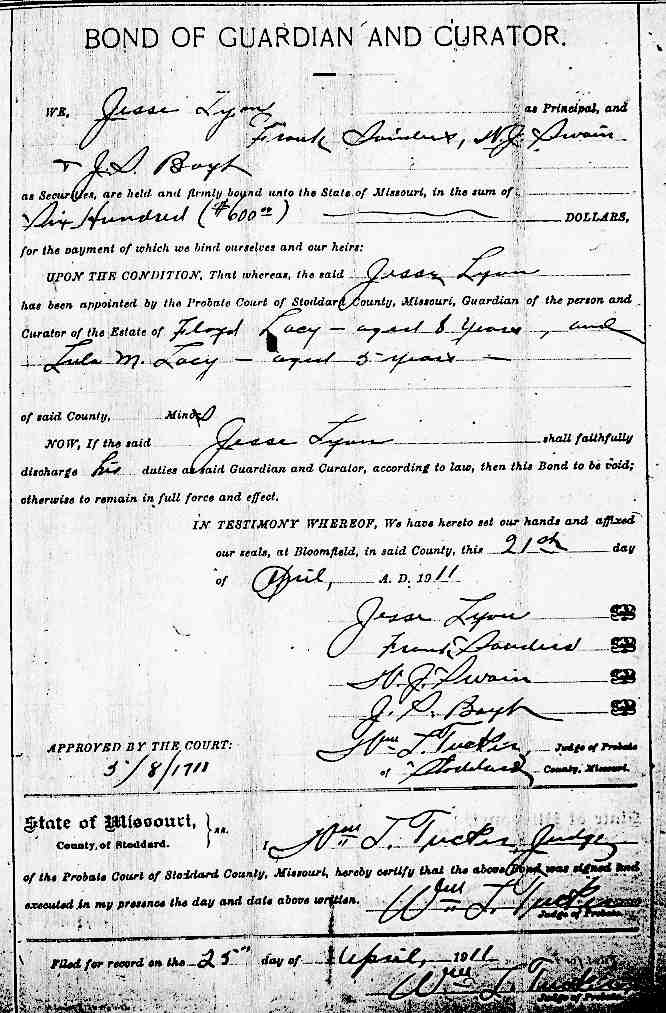 BOND OF GUARDIAN AND CURATOR.
WE, Jesse Lyon as Principal, and
Frank Sanders, W. J. Swain
+ J. S. Boyt
as Securities, are held and firmly bound unto the State of Missouri, in the sum of
Six Hundred ($600 00) DOLLARS,
for the payment of which we bind ourselves and our heirs:
UPON THE CONDITION, That whereas, the said Jesse Lyon
has been appointed by the Probate Court of Stoddard County, Missouri, Guardian of the person and
Curator of the Estate of Floyd Lacy - aged 8 years, and
Lula M. Lacy - aged 5 years -
of said County, Minors
NOW, If the said Jesse Lyon shall faithfully
discharge his duties as said Guardian and Curator, according to law, then this Bond to be void;
otherwise to remain in full force and effect.
IN TESTIMONY WHEREOF, We have hereto set our hands and affixed
our seals, at Bloomfield, in said County, this 21st day
of April, A. D. 1911
Jesse Lyon
Frank Sanders
W. J. Swain
J. S. Boyt
APPROVED BY THE COURT: Wm L. Tucker, Judge of Probate
5/8/1911 of Stoddard County, Missouri.
State of Missouri,
County of Stoddard. } ss. I, Wm L. Tucker, Judge
of the Probate Court of Stoddard County, Missouri, hereby certify that the above Bond was signed and
executed in my presence the day and date above written. Wm L. Tucker
Judge of Probate.
Filed for record on the 25th day of April, 1911
Wm L. Tucker
Judge of Probate.